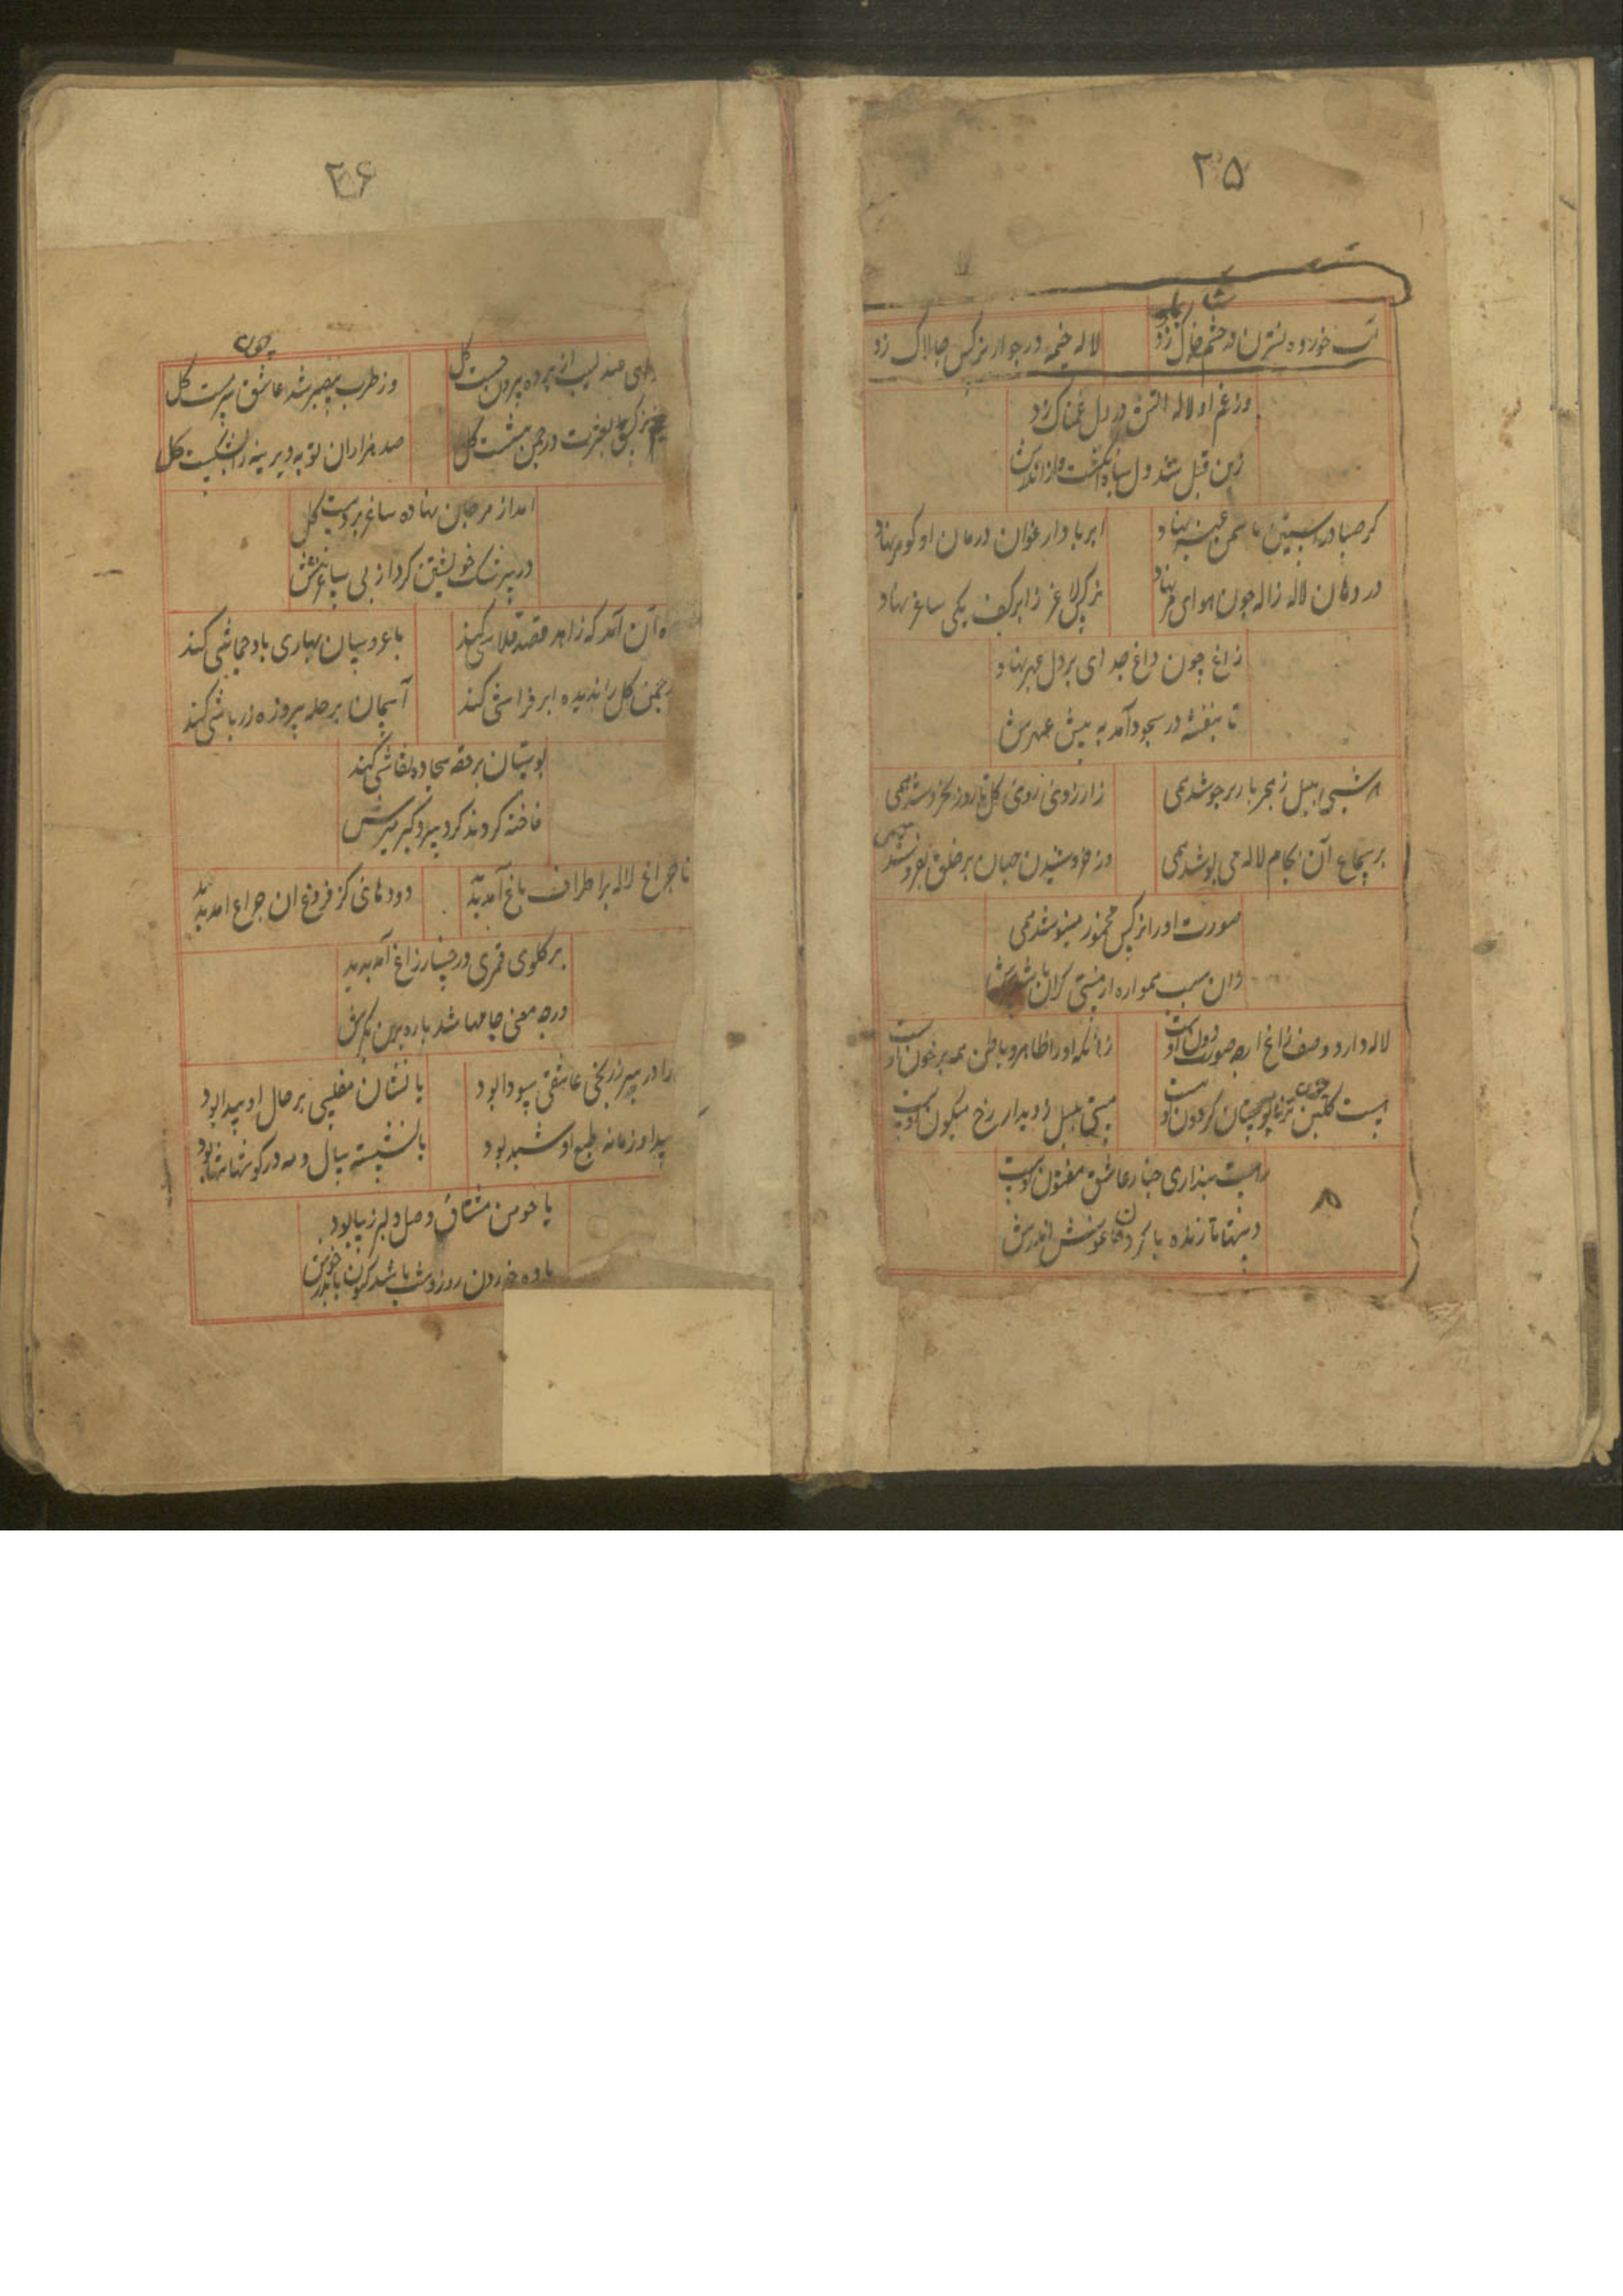 ۲۵
آب خورده نسترن در چشم خاک زد لاله خیمه در جوار نرکس چالاک زد
وز غم او لاله اتش در دل غمناک زد
زین قبل شد دل سیاه
کر صبا در استین یاسمن عنبر نهاد ابر باد ارغوان درمان او کوهر نهاد
در دهان لاله ژاله چون هوای نهاد نرکس لاغر زابر کف یکی ساغر نهاد
زاغ چون داغ جدای بر دل عبهر نهاد
تا بنفشه در سجود آمد به پیش عبهرش
هر شبی بلبل ز بهر یار بر جوشد همی زارزوی روی کل تا روز بخروشد همی
بر سماع آن بجام لاله می نوشد همی وز خروشیدن جهان بر خلق بفروشد همی
صورت او را نرکس مخمور مینوشد همی
وان سبب همواره از مستی کران باشد سرش
لاله دارد وصف زاغ ار چه صورت دون اوست زانکه او را ظاهر و باطن همه پر خون اوست
هست کلبن چون ثریا بوستان کردون اوست مستی بلبل ز دیدار رخ میکون اوست
راست پنداری چنار عاشق مفتون اوست
دستها تا زنده باکردن اغوشش اندرش
۲۶
عندلیب از پرده بیرون جست کل وز طرب بیصبر شد عاشق سرمست کل
بعشرت در چمن بنشست کل صد هزاران توبه دیرینه را بشکست کل
امد از مرجان نهاده ساغر بر دست کل
خویشتن کرد از بی ساغرش
آن آمد که زاهد قصد قلاشی کند با عروسان بهاری باد جماشی کند
چمن کل را ندیده ابر فراشی کند آسمان بر حله پیروزه زر باشی کند
بوستان بر حقه بیجاده نقاشی کند
فاخته کردند کرد سرو کبر
تا چراغ لاله بر اطراف باغ آمد پدید دودهائی کز فروغ ان چراغ امد پدید
بر کلوی قمری و رخسار زاغ آمد پدید
در چه معنی جامها شد پاره برتن
را در سر زر بخی عاشقی سودا بود یا نشان مفلسی بر حال او پیدا بود
پیدا و زمانه طبع او شیدا بود یا نشسته سال و مه در کوشها تنها بود
یا چو من مشتاق وصل دلبر زیبا بود
باده خوردن روز و شب باشد کنون